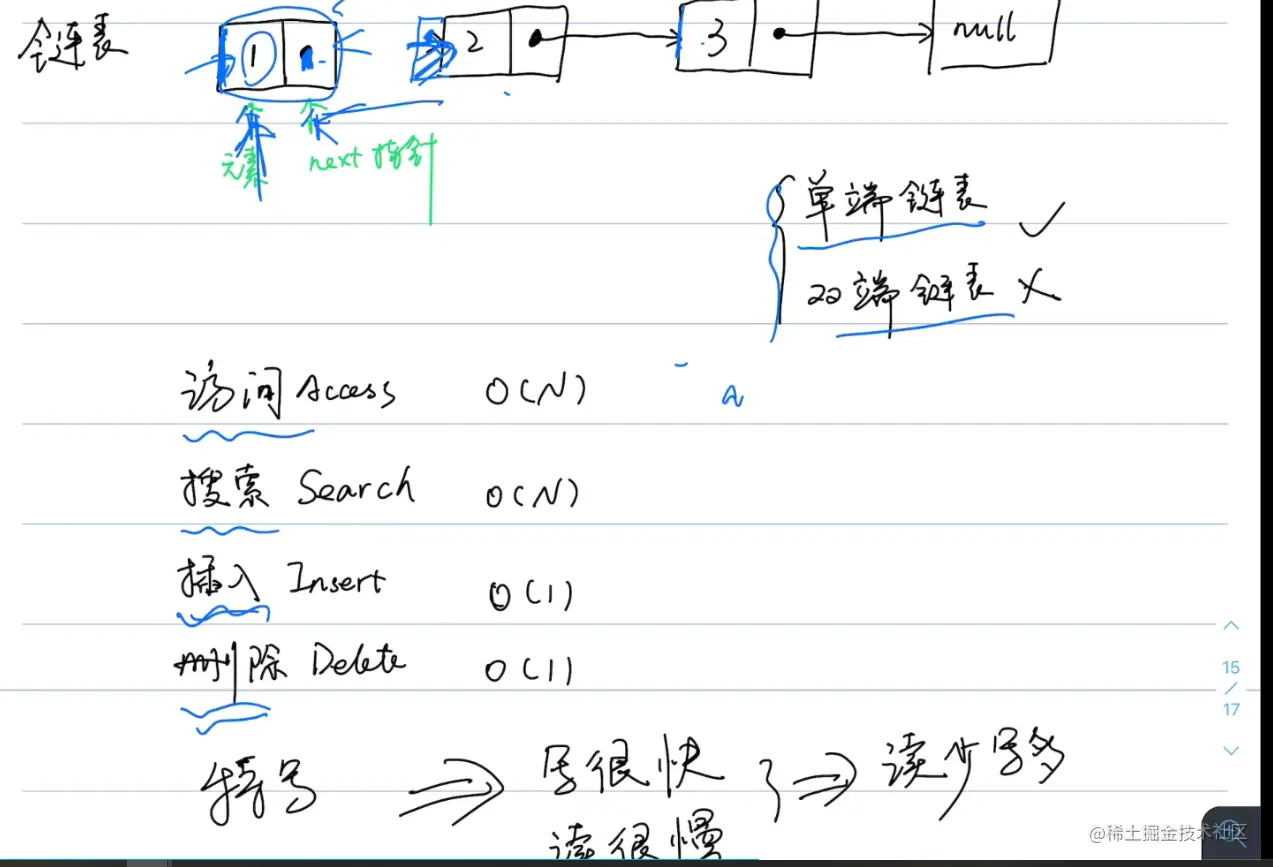 链表
1 2 3 null
元素 next 指针
单端链表 ✓
双端链表 ×
访问 Access O(N)
搜索 Search O(N)
插入 Insert O(1)
删除 Delete O(1)
15
/
17
特点 ⇒ 写很快 } ⇒ 读少写多
读很慢
@稀土掘金技术社区